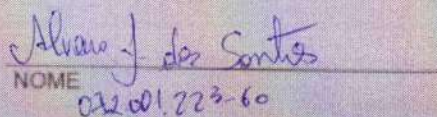 Alvaro J. dos Santos
NOME
032.001.223-60